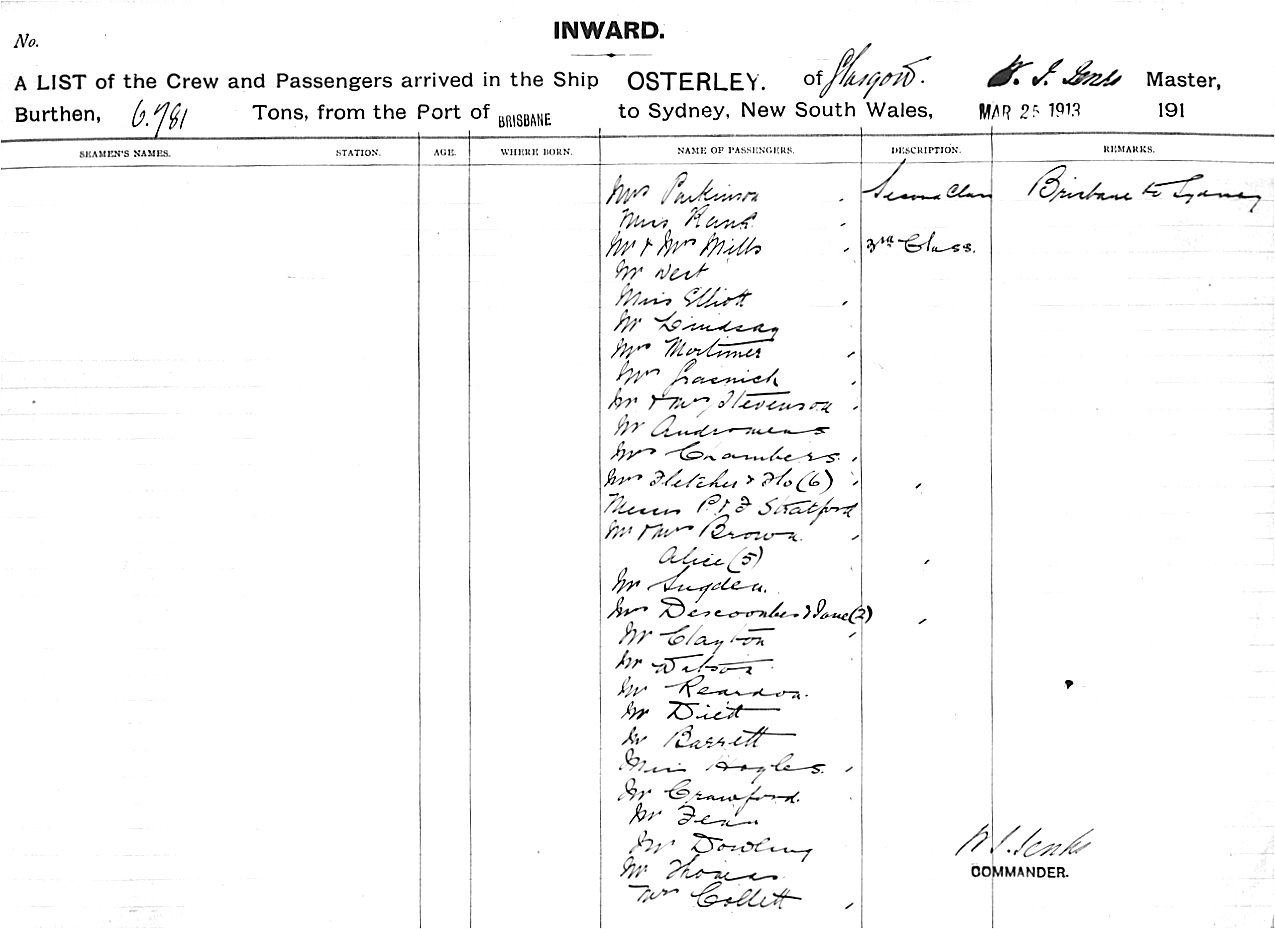 INWARD.
No.
A LIST of the Crew and Passengers arrived in the Ship OSTERLEY. of Glasgow. W. S. Jenks Master,
Burthen, 6.781 Tons, from the Port of BRISBANE to Sydney, New South Wales, MAR 25 1913 191
SEAMEN'S NAMES. STATION. AGE. WHERE BORN. NAME OF PASSENGERS. DESCRIPTION. REMARKS.
Mrs Parkinson Second Class Brisbane to Sydney
Miss
Mr & Mrs Mills 3rd Class.
Mr West
Miss Elliott
Mr Lindsay
Mrs Mortimer
Mrs
Mr & Mrs Stevenson
Mr
Mrs Chambers
Mrs Fletcher & Flo (6)
Messrs P & F Stratford
Mr & Mrs Brown
Alice (5)
Mr Sugden.
Mrs Descoombes & Jane (2)
Mr Clayton
Mr Watson
Mr Reardon.
Mr
Mr Barrett
Miss Hoyles.
Mr Crawford.
Mr
Mr Dowling
W S. Jenks
COMMANDER.
Mr Thomas
Mrs Collett